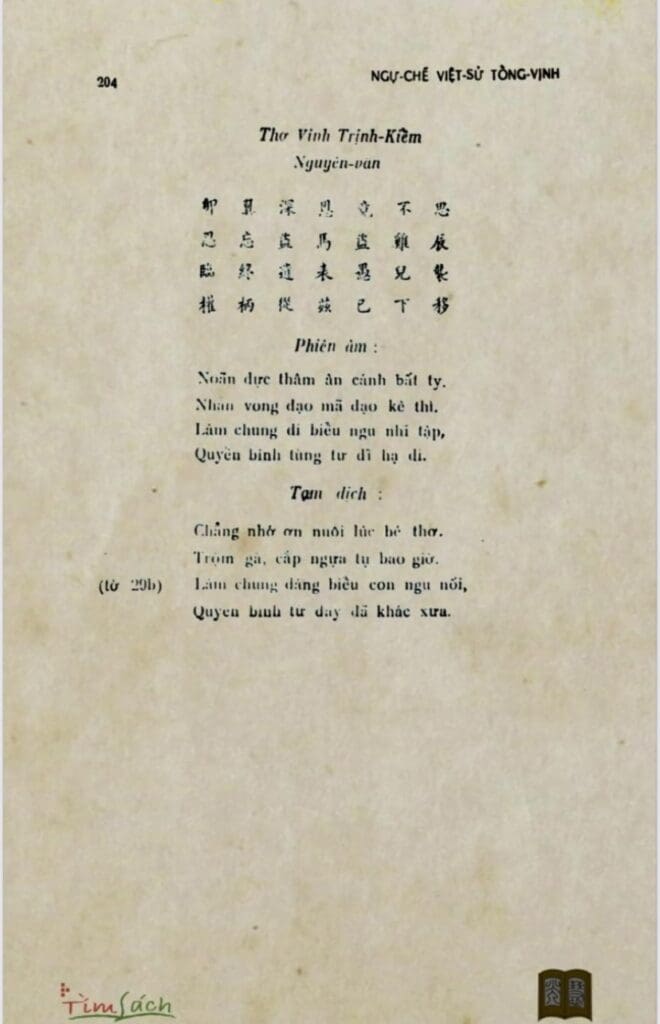 204
NGỰ-CHẾ VIỆT-SỬ TỔNG-VỊNH
Thơ Vịnh Trịnh-Kiểm
Nguyên-văn
卵翼深恩竟不思
忍忘盜馬盜雞辰
臨終遺表愚兒襲
權柄從茲已下移
Phiên âm :
Noãn dực thâm ân cánh bất ty.
Nhẫn vong đạo mã đạo kê thì.
Lâm chung di biểu ngu nhi tập,
Quyền bính tùng tư dĩ hạ di.
Tạm dịch :
Chẳng nhớ ơn nuôi lúc bé thơ.
Trộm gà, cắp ngựa tự bao giờ.
(tờ 29b) Lâm chung dâng biểu con ngu nối,
Quyền bính từ đây đã khác xưa.
TìmSách